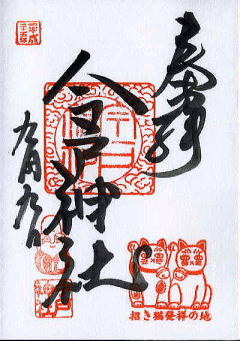 奉拝
今戸神社
九月九日
平成
二十五年
招き猫発祥の地